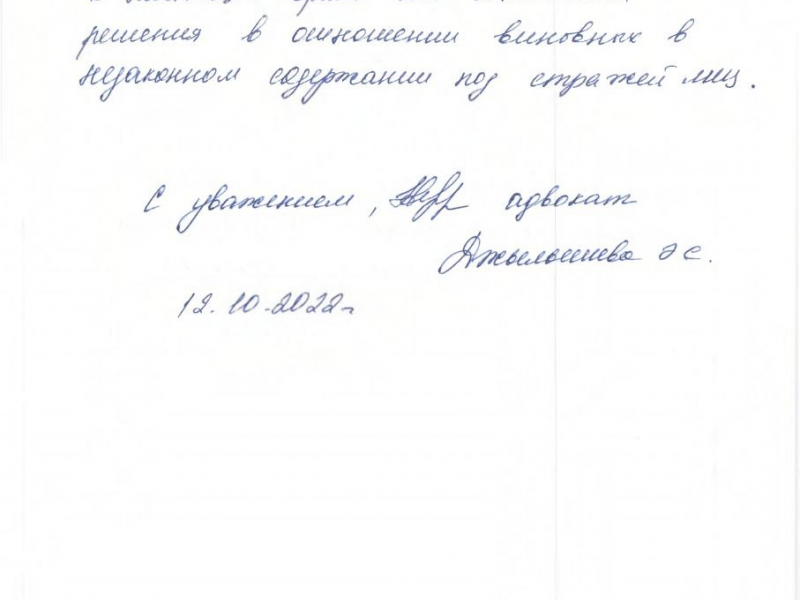 решения в отношении виновных в
незаконном содержании под стражей лиц.
С уважением, адвокат
Джылышева э с.
12.10.2022г